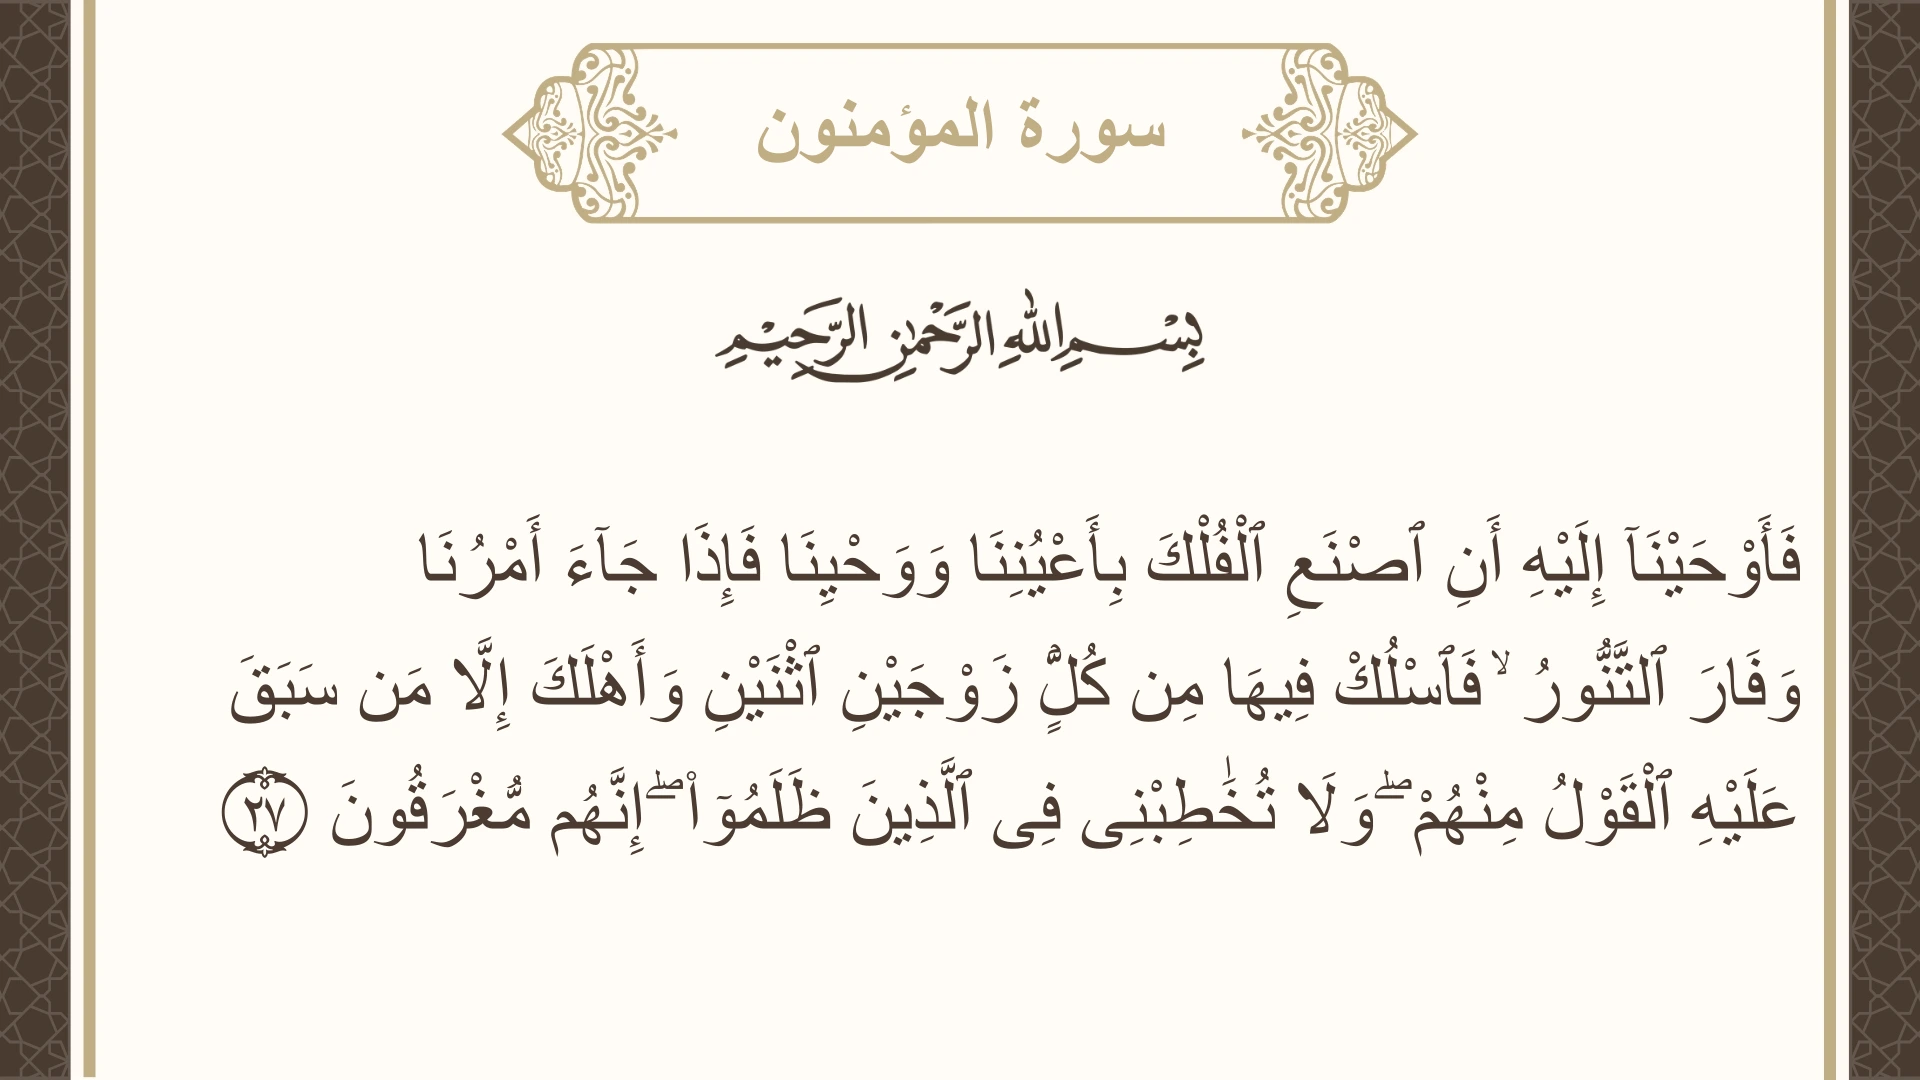 سورة المؤمنون
بِسْمِ اللهِ الرَّحْمٰنِ الرَّحِيْمِ
فَأَوْحَيْنَآ إِلَيْهِ أَنِ ٱصْنَعِ ٱلْفُلْكَ بِأَعْيُنِنَا وَوَحْيِنَا فَإِذَا جَآءَ أَمْرُنَا
وَفَارَ ٱلتَّنُّورُ ۙ فَٱسْلُكْ فِيهَا مِن كُلٍّ زَوْجَيْنِ ٱثْنَيْنِ وَأَهْلَكَ إِلَّا مَن سَبَقَ
عَلَيْهِ ٱلْقَوْلُ مِنْهُمْ ۖ وَلَا تُخَٰطِبْنِى فِى ٱلَّذِينَ ظَلَمُوٓا۟ ۖ إِنَّهُم مُّغْرَقُونَ ٢٧